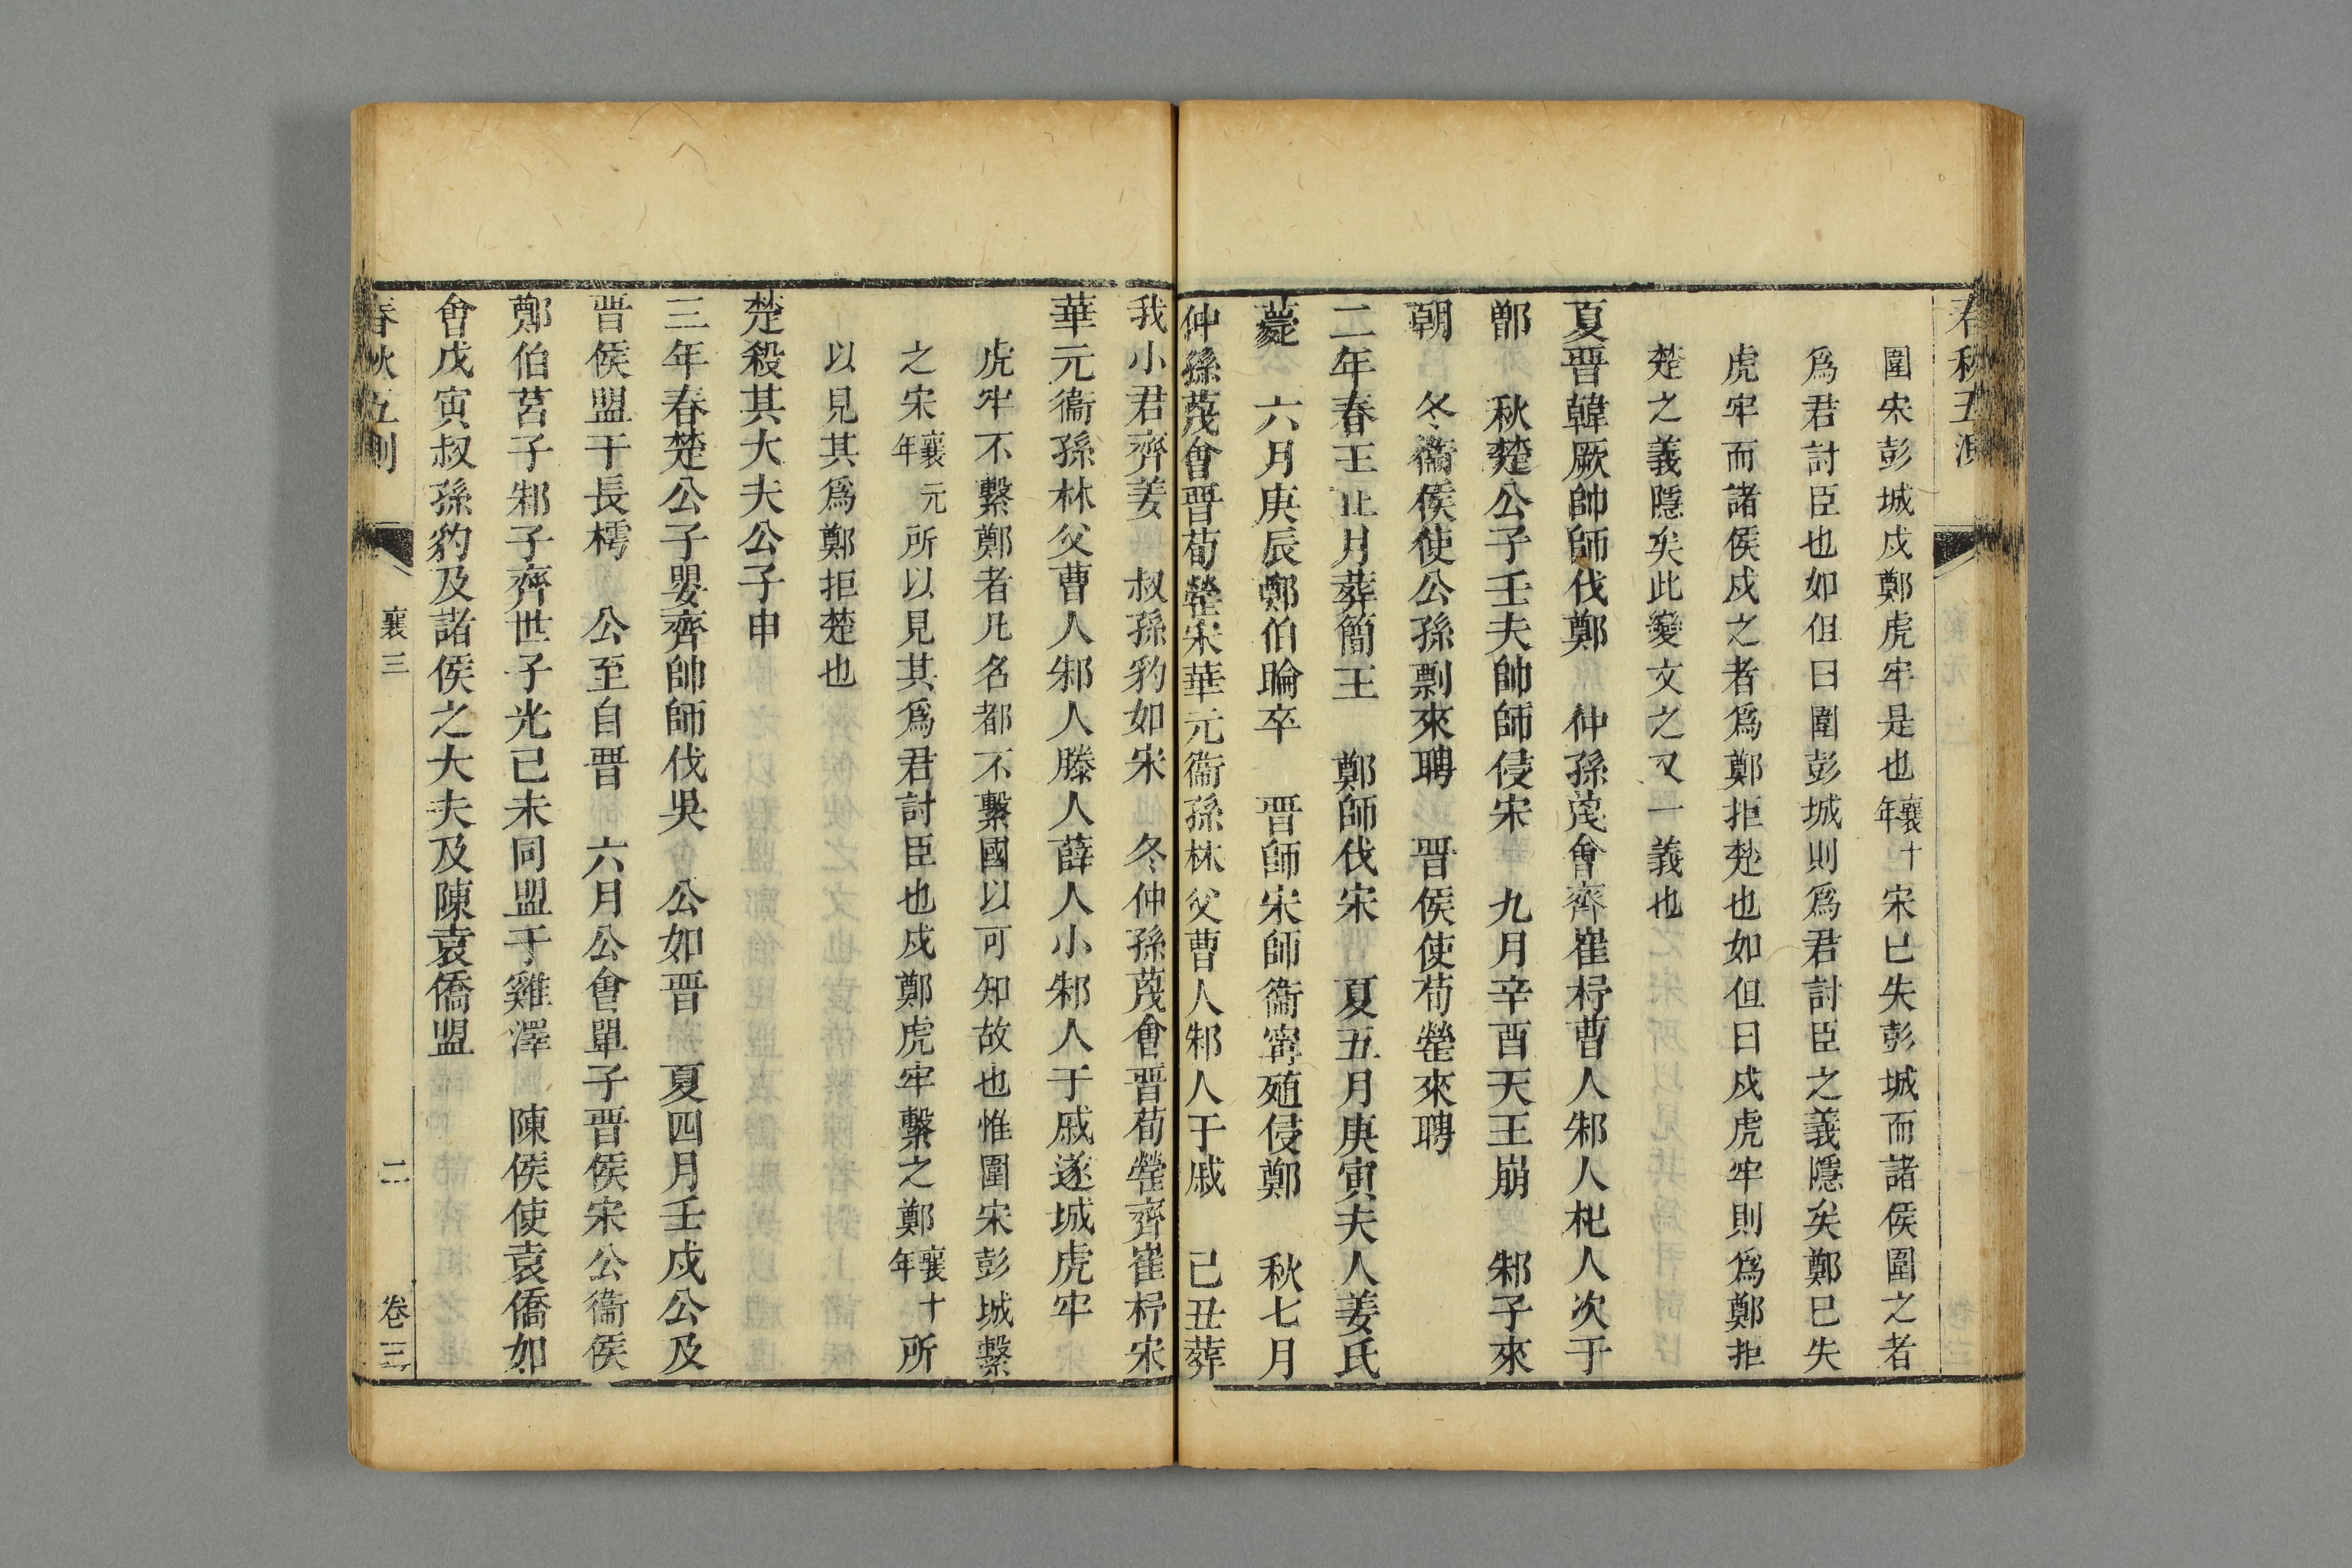 春秋五測
圍宋彭城戍鄭虎牢是也襄十年宋已失彭城而諸侯圍之者
爲君討臣也如但曰圍彭城則爲君討臣之義隱矣鄭已失
虎牢而諸侯戍之者爲鄭拒楚也如但曰戍虎牢則爲鄭拒
楚之義隱矣此變文之又一義也
夏晉韓厥帥師伐鄭　仲孫蔑會齊崔杼曹人邾人杞人次于
鄫　秋楚公子壬夫帥師侵宋　九月辛酉天王崩　邾子來
朝　冬衞侯使公孫剽來聘　晉侯使荀罃來聘
二年春王正月葬簡王　鄭師伐宋　夏五月庚寅夫人姜氏
薨　六月庚辰鄭伯睔卒　晉師宋師衞甯殖侵鄭　秋七月
仲孫蔑會晉荀罃宋華元衞孫林父曹人邾人于戚　己丑葬
我小君齊姜　叔孫豹如宋　冬仲孫蔑會晉荀罃齊崔杼宋
華元衞孫林父曹人邾人滕人薛人小邾人于戚遂城虎牢
虎牢不繫鄭者凡名都不繫國以可知故也惟圍宋彭城繫
之宋襄元年所以見其爲君討臣也戍鄭虎牢繫之鄭襄十年所
以見其爲鄭拒楚也
楚殺其大夫公子申
三年春楚公子嬰齊帥師伐吳　公如晉　夏四月壬戌公及
晉侯盟于長樗　公至自晉　六月公會單子晉侯宋公衞侯
鄭伯莒子邾子齊世子光己未同盟于雞澤　陳侯使袁僑如
會戊寅叔孫豹及諸侯之大夫及陳袁僑盟
春秋五測　襄三　二　卷三